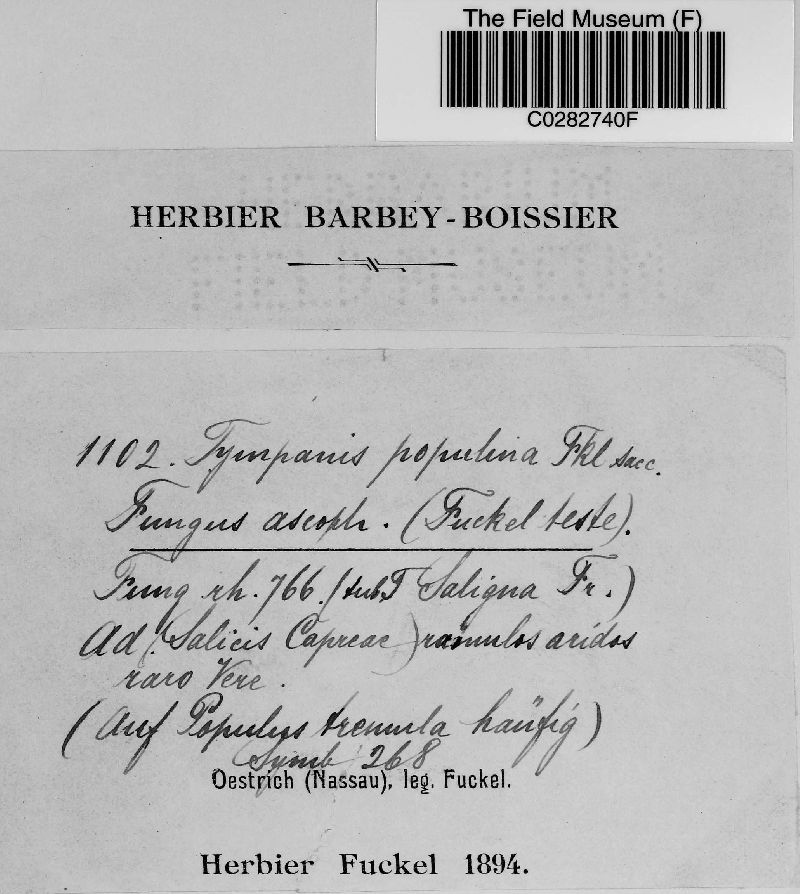 The Field Museum (F)
C0282740F
HERBIER BARBEY-BOISSIER
1102. Tympanis populina Fkl sacc.
Fungus ascoph. (Fuckel teste).
Fung rh. 766. (sub T Saligna Fr.)
Ad (Salicis Capreae) ramulos aridos
raro Vere.
(auf Populus tremula haüfig)
Symb 268
Oestrich (Nassau), leg. Fuckel.
Herbier Fuckel 1894.